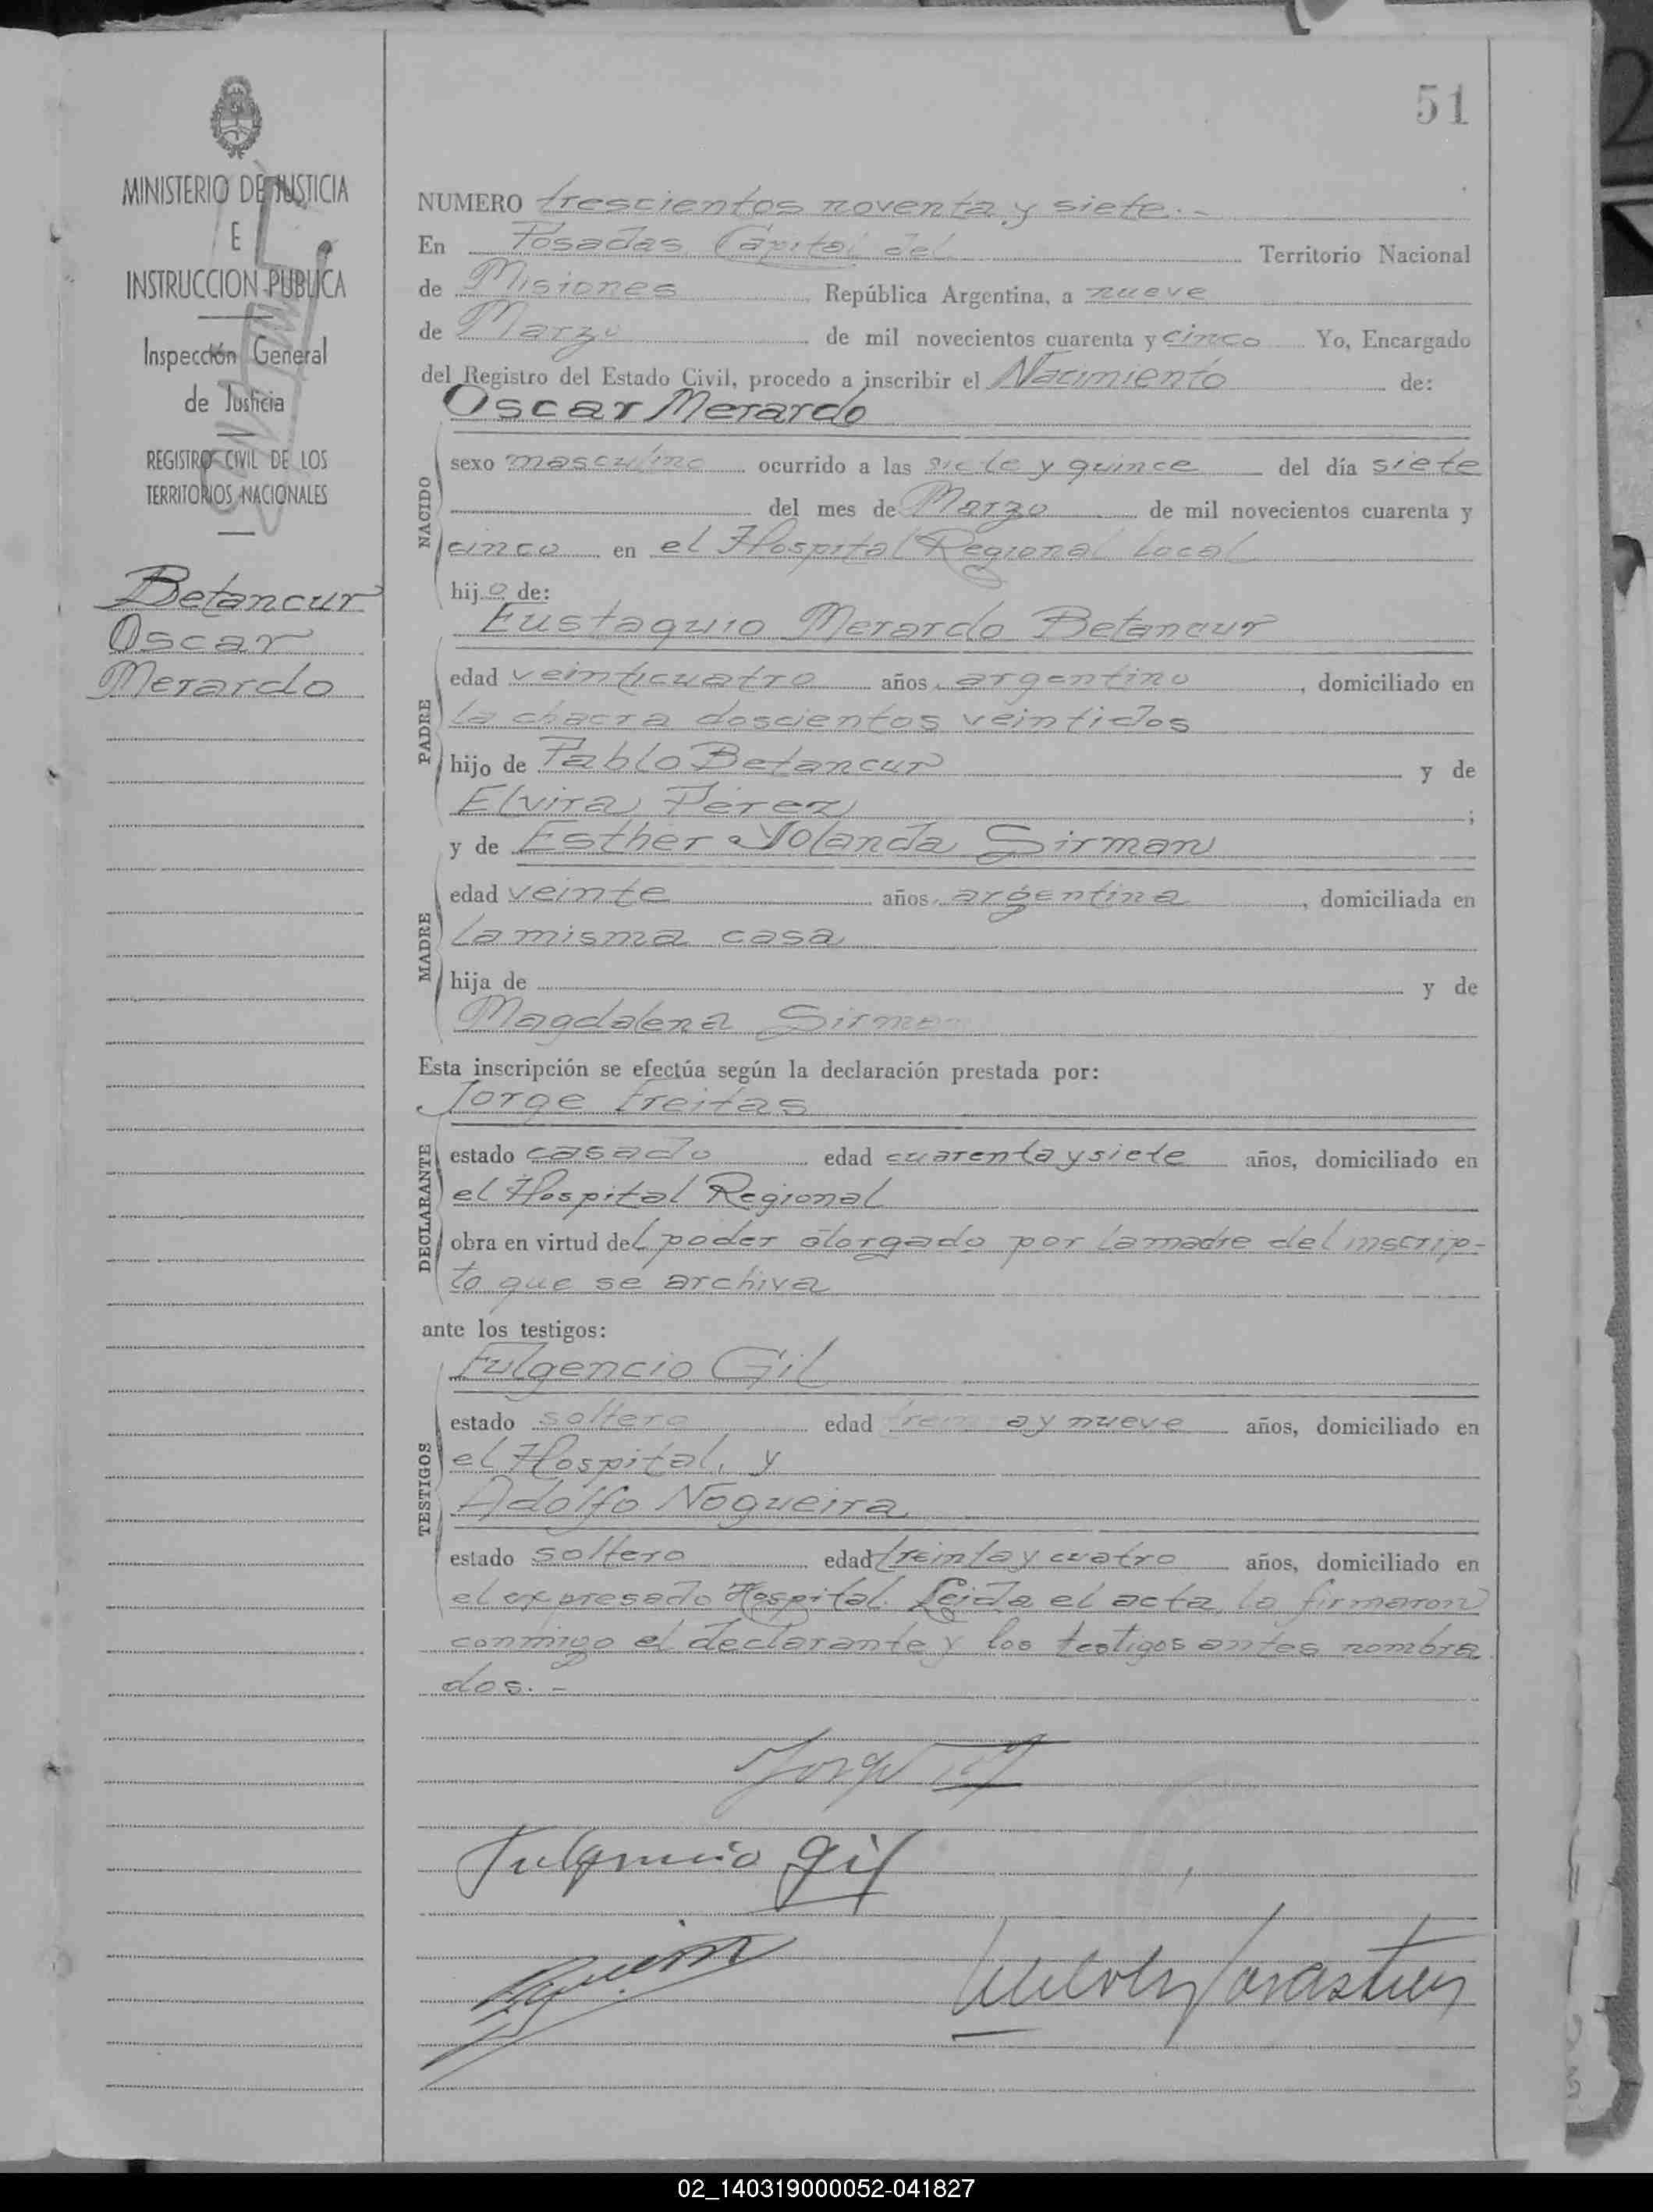 51
MINISTERIO DE JUSTICIA
E
INSTRUCCION PUBLICA
Inspección General
de Justicia
REGISTRO CIVIL DE LOS
TERRITORIOS NACIONALES
Betancur
Oscar
Merardo
NUMERO trescientos noventa y siete.-
En Posadas Capital del Territorio Nacional
de Misiones República Argentina, a nueve
de Marzo de mil novecientos cuarenta y cinco Yo, Encargado
del Registro del Estado Civil, procedo a inscribir el Nacimiento de:
Oscar Merardo
NACIDO
sexo masculino ocurrido a las siete y quince del día siete
del mes de Marzo de mil novecientos cuarenta y
cinco en el Hospital Regional local
hijo de:
Eustaquio Merardo Betancur
PADRE
edad veinticuatro años, argentino, domiciliado en
la chacra doscientos veintidos
hijo de Pablo Betancur y de
Elvira Pérez;
y de Esther Yolanda Sirman
MADRE
edad veinte años, argentina, domiciliada en
la misma casa
hija de y de
Magdalena
Esta inscripción se efectúa según la declaración prestada por:
Jorge Freitas
DECLARANTE
estado casado edad cuarenta y siete años, domiciliado en
el Hospital Regional
obra en virtud del poder otorgado por la madre del inscrip-
to que se archiva
ante los testigos:
Fulgencio Gil
TESTIGOS
estado soltero edad ay nueve años, domiciliado en
el Hospital, y
Adolfo Nogueira
estado soltero edad treinta y cuatro años, domiciliado en
el expresado Hospital. Leida el acta, la firmaron
conmigo el declarante y los testigos antes nombra
dos.-
Jorge
Fulgencio Gil
02_140319000052-041827